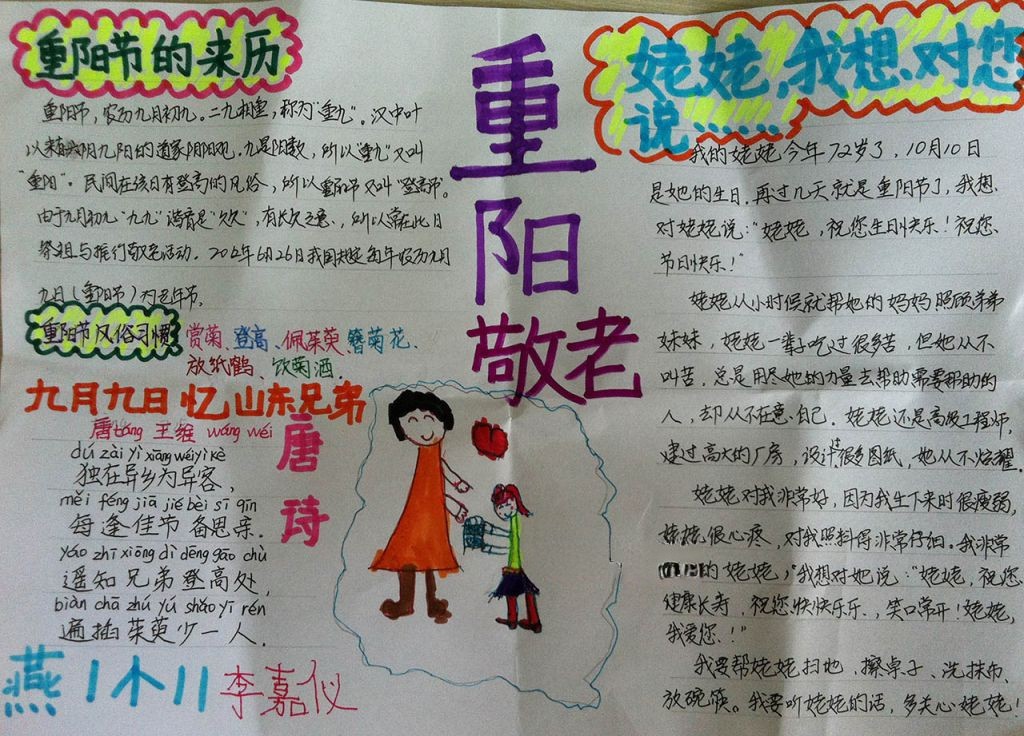 重阳节的来历
重阳节，农历九月初九。二九相重，称为"重九"。汉中叶
以 阴九阳的道家阴阳观，九是阳数，所以"重九"又叫
"重阳"。民间在该日有登高的风俗，所以重阳节又叫"登高节"。
由于九月初九"九九"谐音是"久久"，有长久之意，所以常在此日
祭祖与推行敬老活动。 年6月26日我国规定每年农历九月
九月（重阳节）为老年节。
重阳节风俗习惯
赏菊、登高、佩茱萸、簪菊花、
放纸鹤、饮菊酒。
九月九日忆山东兄弟
唐táng 王维 wáng wéi
dú zài yì xiāng wéi yì kè
独在异乡为异客，
měi féng jiā jié bèi sī qīn
每逢佳节备思亲。
yáo zhī xiōng dì dēng gāo chù
遥知兄弟登高处，
biàn chā zhú yú shǎo yī rén
遍插茱萸少一人。
唐诗
燕小个川 李嘉仪
重阳
敬老
姥姥，我想对您
说……
我的姥姥今年72岁了，10月10日
是她的生日，再过几天就是重阳节了，我想
对姥姥说："姥姥，祝您生日快乐！祝您
节日快乐！"
姥姥从小时候就帮她的妈妈照顾弟弟
妹妹，姥姥一辈子吃过很多苦，但她从不
叫苦，总是用尽她的力量去帮助需要帮助的
人，却从不在意自己。姥姥还是高级工程师，
建过高大的厂房，设计很多图纸，她从不炫耀。
姥姥对我非常好，因为我生下来时很瘦弱，
姥姥很心疼，对我照料得非常仔细。我非常
的姥姥，"我想对她说："姥姥，祝您
健康长寿，祝您快快乐乐，笑口常开！姥姥，
我爱您！"
我要帮姥姥扫地、擦桌子、洗抹布、
放碗筷。我要听姥姥的话，多关心姥姥！